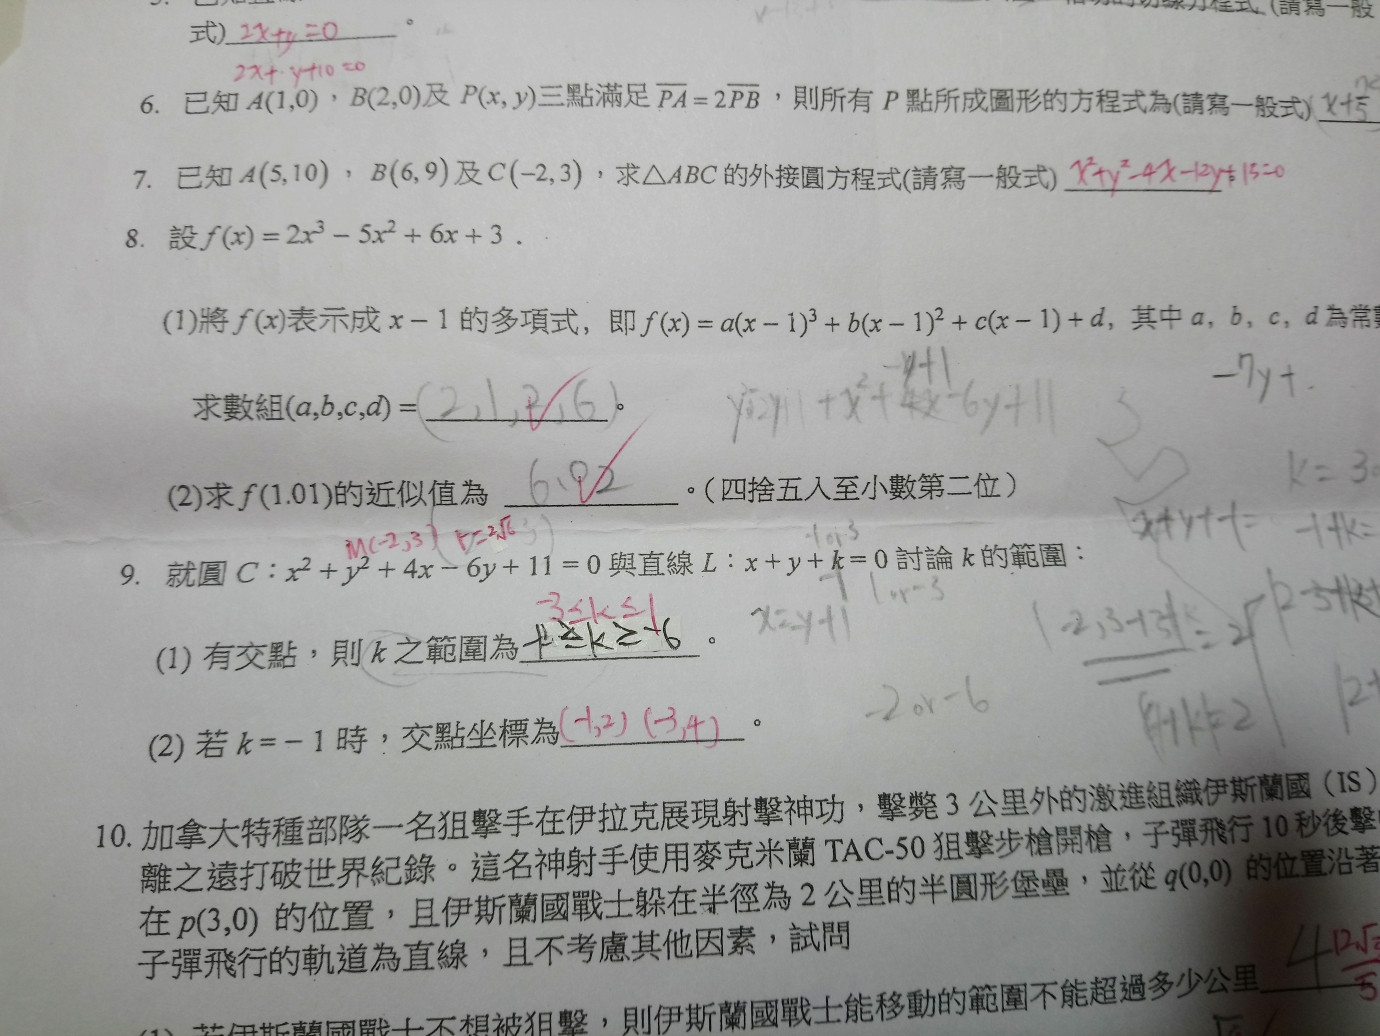 式) 2x+y=0 。
2x+y+10=0
6. 已知 A(1,0),B(2,0)及 P(x, y)三點滿足 PA = 2PB,則所有 P 點所成圖形的方程式為(請寫一般式) x+5
7. 已知 A(5,10), B(6,9)及C(−2,3),求△ABC 的外接圓方程式(請寫一般式) x²+y²-4x-12y+15=0
8. 設 f(x) = 2x³ − 5x² + 6x + 3 .
(1)將 f(x)表示成 x − 1 的多項式, 即 f(x) = a(x − 1)³ + b(x − 1)² + c(x − 1) + d, 其中 a, b, c, d 為常
-y+1
-7y+
求數組(a,b,c,d) = (2,1,2,6)。
(2)求 f(1.01)的近似值為 6.02 。(四捨五入至小數第二位)
M(-2,3)
9. 就圓 C:x² + y² + 4x − 6y + 11 = 0 與直線 L:x + y + k = 0 討論 k 的範圍:
-3≤k≤1
(1) 有交點,則 k 之範圍為 。
x=-y+1
-2 or -6
(2) 若 k = − 1 時,交點坐標為 (-1,2) (-3,4) 。
10. 加拿大特種部隊一名狙擊手在伊拉克展現射擊神功,擊斃 3 公里外的激進組織伊斯蘭國(IS)
離之遠打破世界紀錄。這名神射手使用麥克米蘭 TAC-50 狙擊步槍開槍,子彈飛行 10 秒後擊
在 p(3,0) 的位置,且伊斯蘭國戰士躲在半徑為 2 公里的半圓形堡壘,並從 q(0,0) 的位置沿著
子彈飛行的軌道為直線,且不考慮其他因素,試問
(1) 若伊斯蘭國戰士不想被狙擊,則伊斯蘭國戰士能移動的範圍不能超過多少公里 4